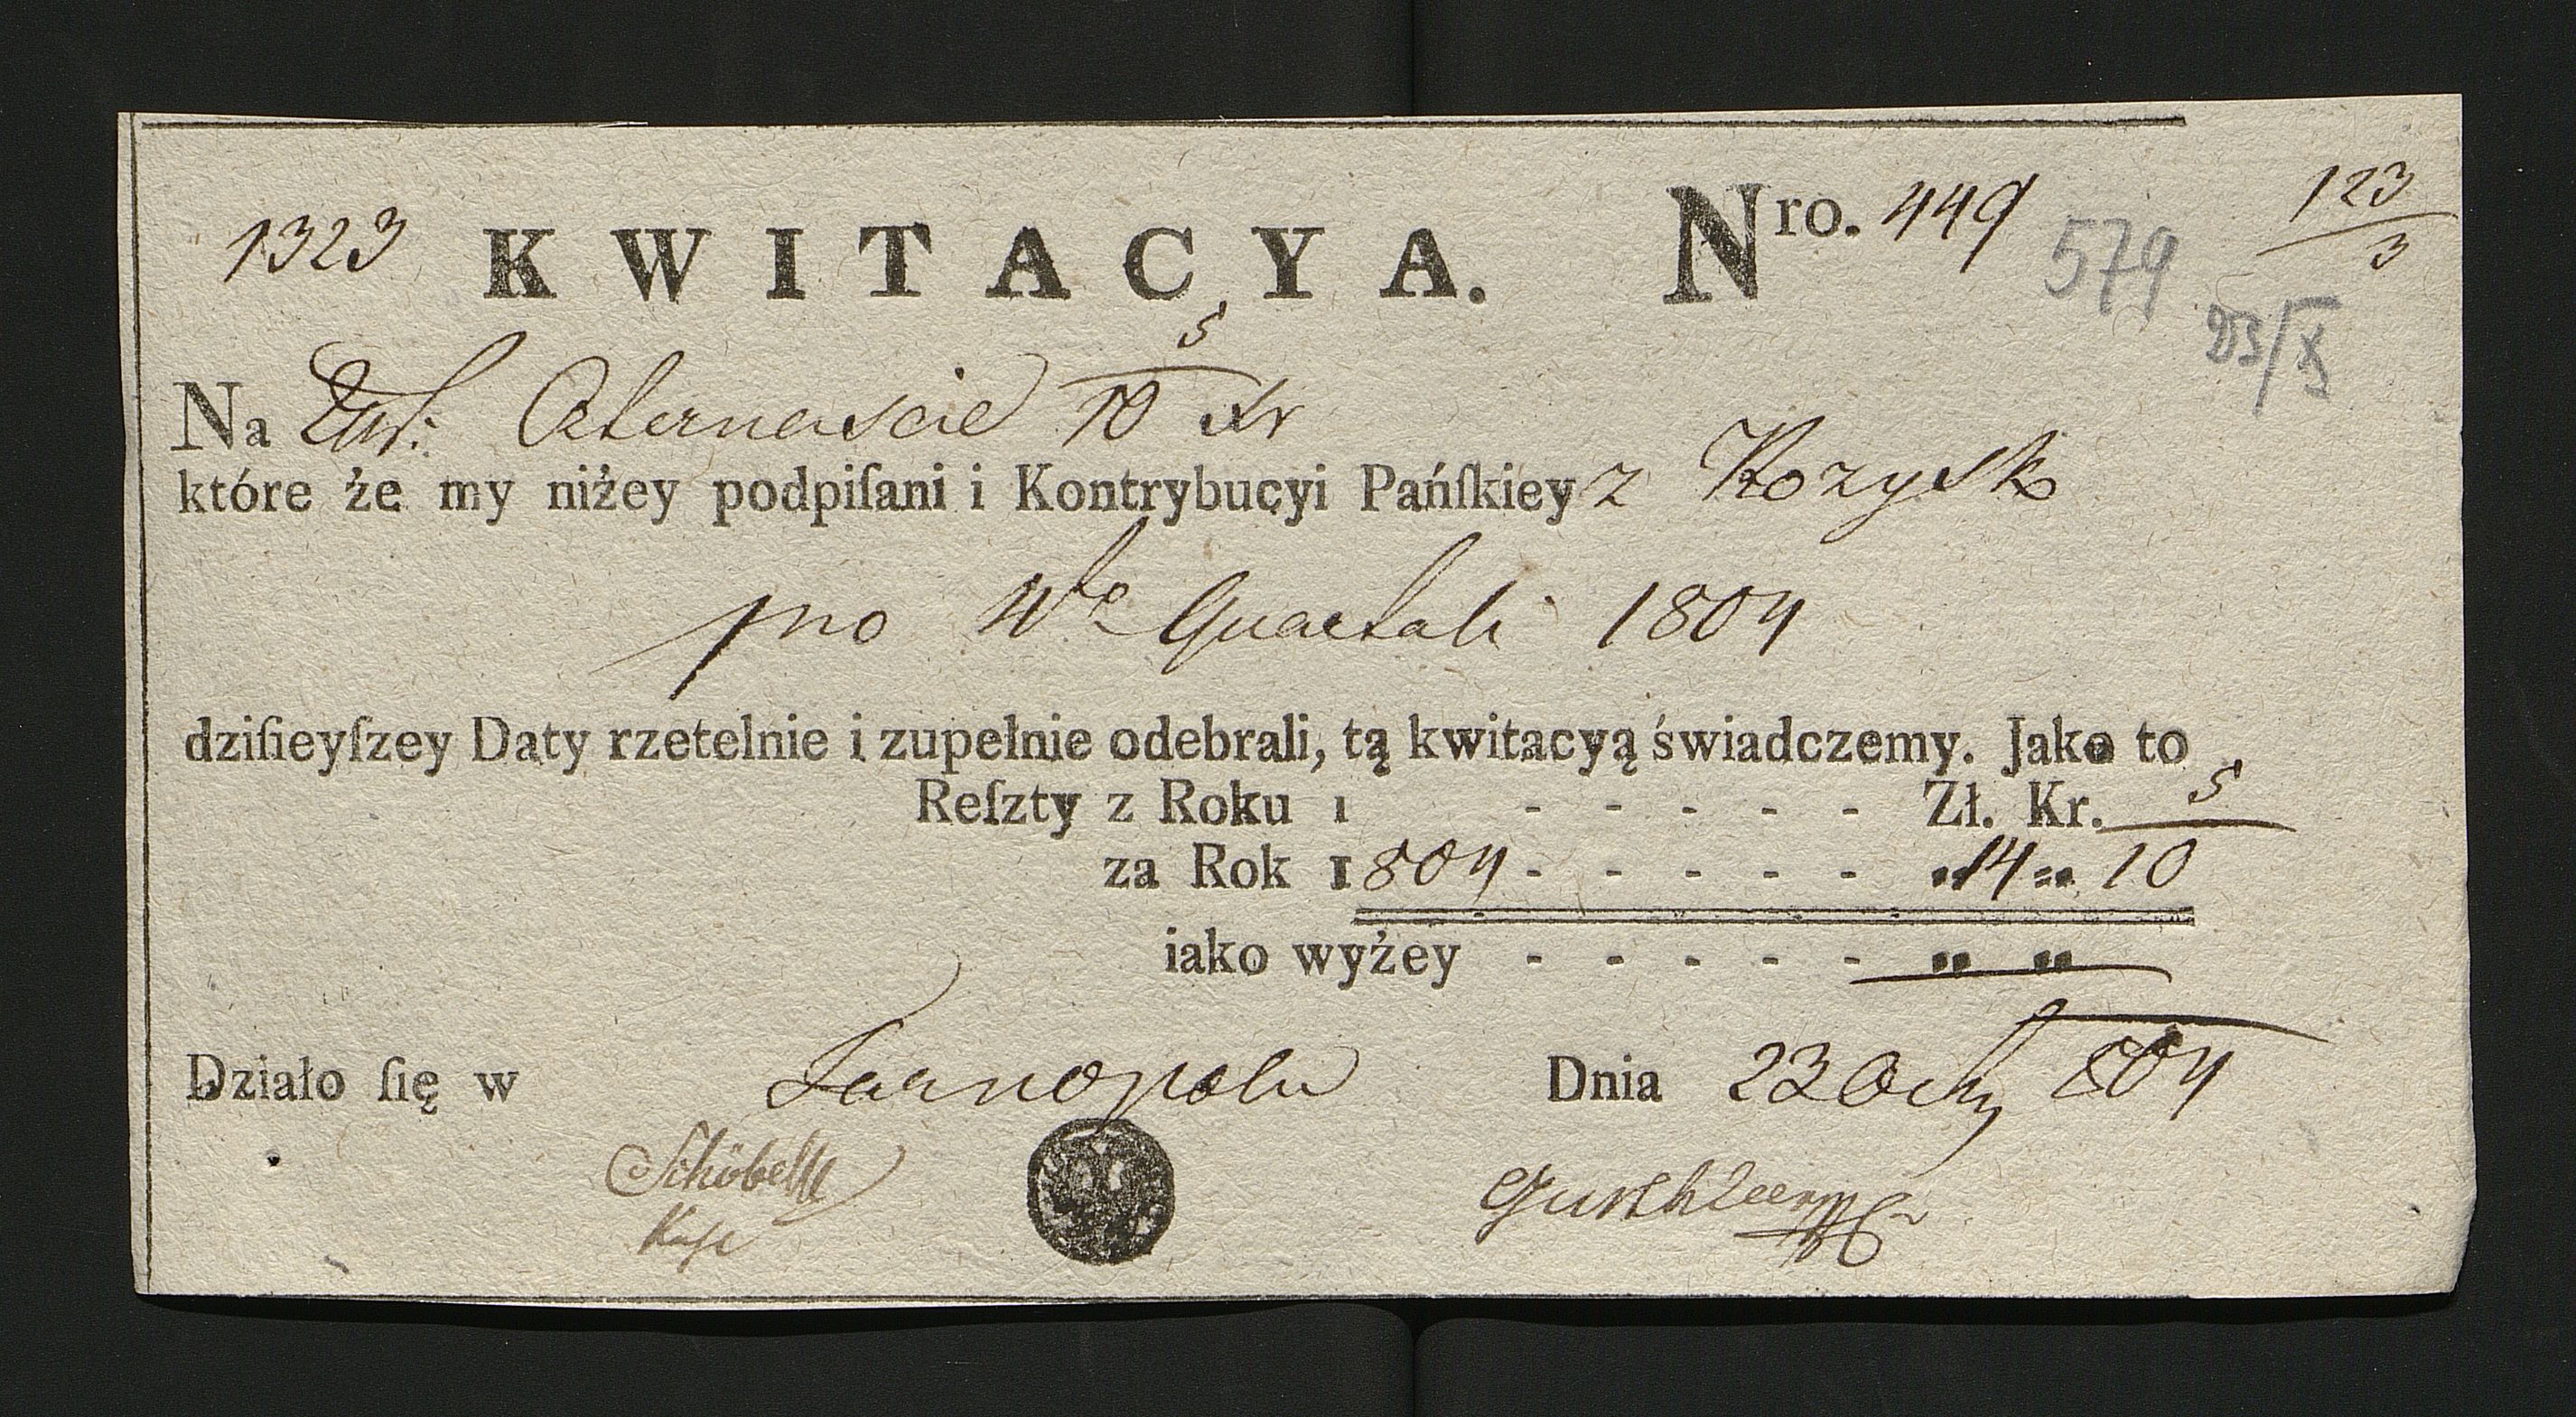 1323 KWITACYA. Nro. 449 123/3
579
23/X
5
Na Czternascie 10 xr
które że my niżey podpiſani i Kontrybucyi Pańſkiey z
pro Quartali 1804
dziſieyſzey Daty rzetelnie i zupełnie odebrali, tą kwitacyą świadczemy. Jako to
Reſzty z Roku 1 - - - - - Zł. Kr. 5
za Rok 1804 - - - - - „ 14 „ 10
iako wyżey - - - - - „ „
Działo ſię w Tarnopolu Dnia 23 804